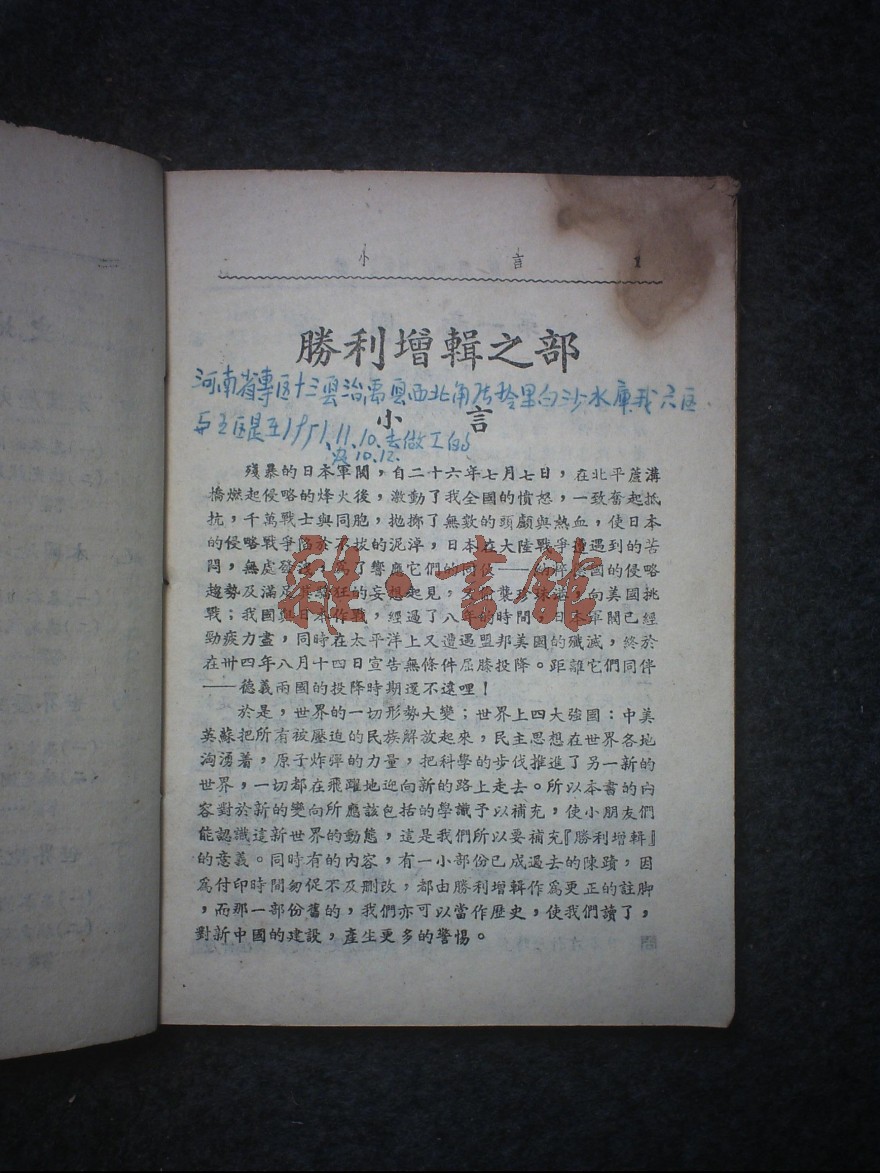 小言 1
勝利增輯之部
河南省專区十三
西北角
白沙水庫我六区
五区是至1951.11.10.去做工的
10.12.
小言
殘暴的日本軍閥，自二十六年七月七日，在北平蘆溝
橋燃起侵略的烽火後，激動了我全國的憤怒，一致奮起抵
抗，千萬戰士與同胞，拋擲了無數的頭顱與熱血，使日本
的侵略戰爭陷於不拔的泥淖，日本在大陸戰爭遭遇到的苦
悶，無處發洩，爲了響應它們的同伴——的侵略
趨勢及滿足其狂的妄想起見，又偷襲珍珠港，向美國挑
戰；我國與日本作戰，經過了八年的時間，日本軍閥已經
勁疲力盡，同時在太平洋上又遭遇盟邦美國的殲滅，終於
在卅四年八月十四日宣告無條件屈膝投降。距離它們同伴
——德義兩國的投降時期還不遠哩！
於是，世界的一切形勢大變；世界上四大強國：中美
英蘇把所有被壓迫的民族解放起來，民主思想在世界各地
洶湧着，原子炸彈的力量，把科學的步伐推進了另一新的
世界，一切都在飛躍地迎向新的路上走去。所以本書的內
容對於新的變向所應該包括的學識予以補充，使小朋友們
能認識這新世界的動態，這是我們所以要補充『勝利增輯』
的意義。同時有的內容，有一小部份已成過去的陳蹟，因
爲付印時間匆促不及刪改，都由勝利增輯作爲更正的註脚
，而那一部份舊的，我們亦可以當作歷史，使我們讀了，
對新中國的建設，產生更多的警惕。
雜·書館